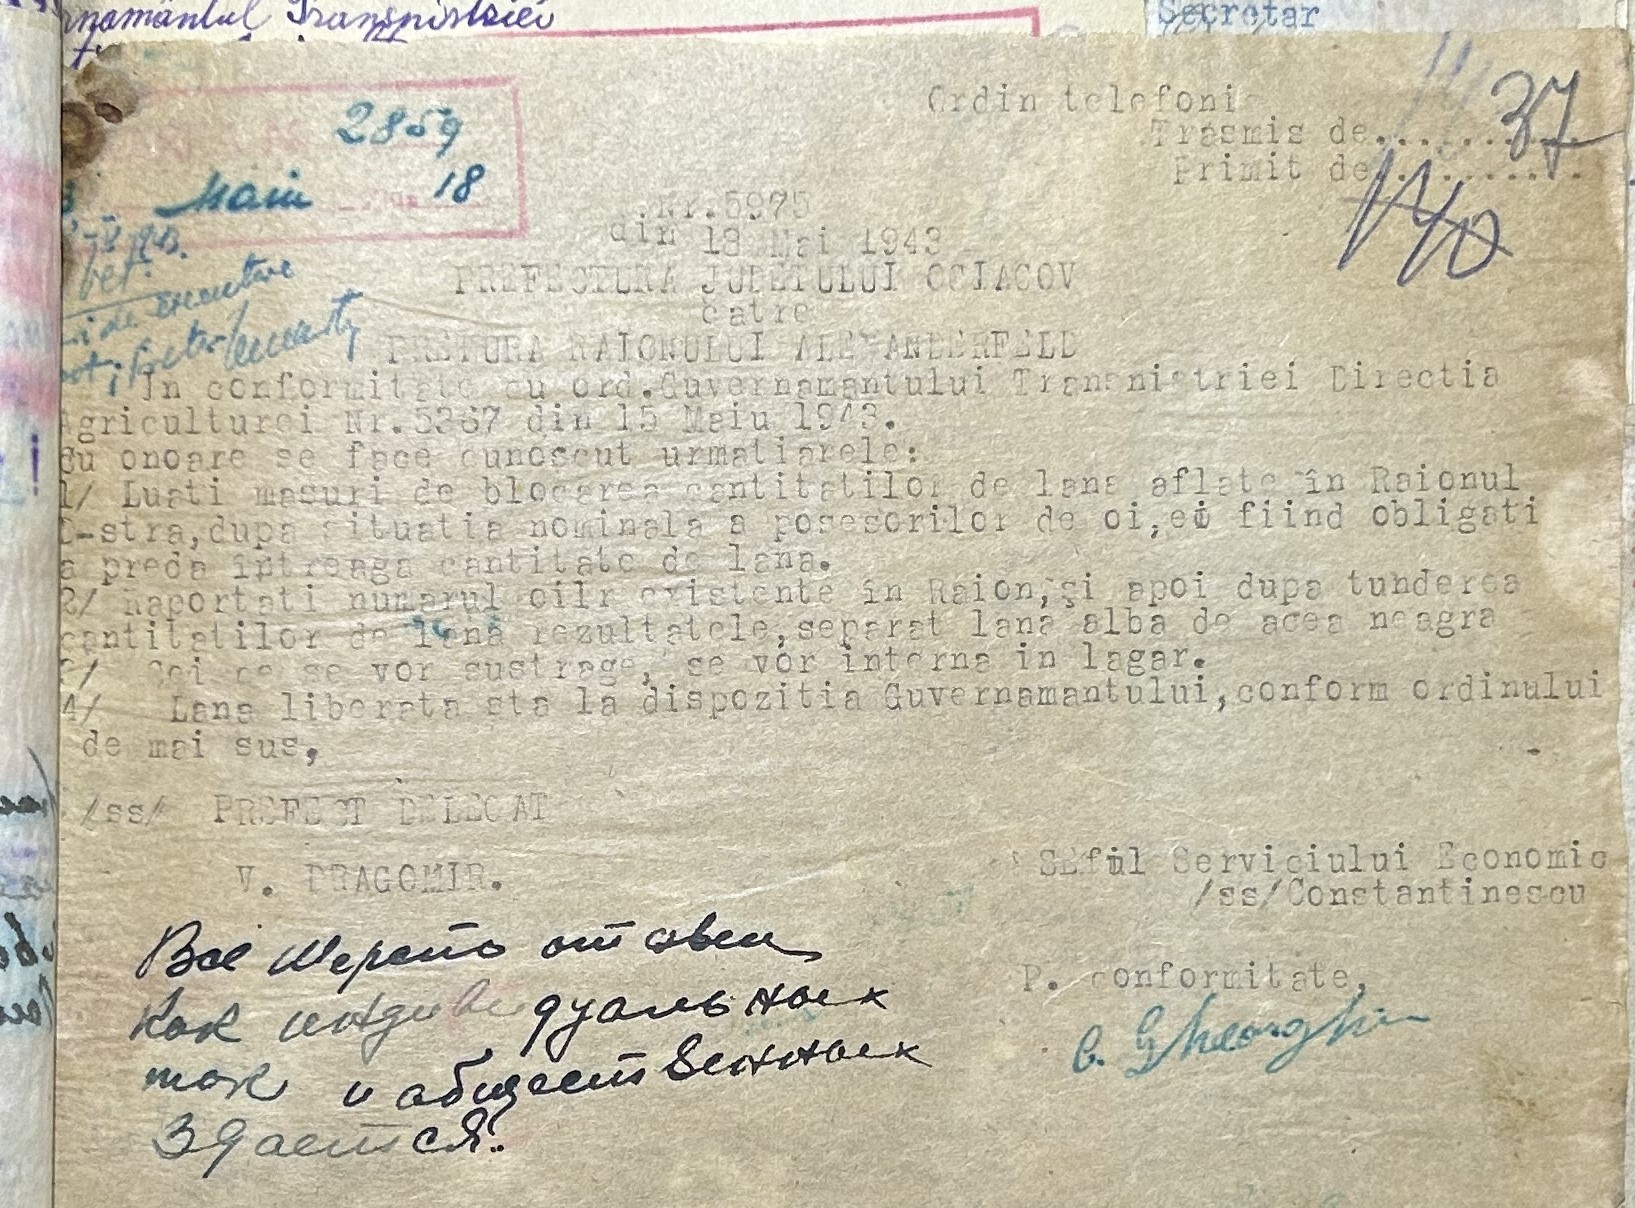 Secretar
Ordin telefonic
2859
37
Trasmis de..........
Primit de..........
140
Maiu 18
Nr.5975
din 18 Mai 1943
PREFECTURA JUDETULUI OCIACOV
catre
PRETURA RAIONULUI ALEXANDERFELD
In conformitate cu ord.Guvernamantului Transnistriei Directia
Agriculturei Nr.5367 din 15 Maiu 1943.
Cu onoare se face cunoscut urmatiarele:
1/ Luati masuri de blocarea cantitatilor de lana aflate în Raionul
D-stra,dupa situatia nominala a posesorilor de oi,ei fiind obligati
a preda întreaga cantitate de lana.
2/ Raportati numarul oilr existente în Raion,și apoi dupa tunderea
cantitatilor de lana rezultatele,separat lana alba de acea neagra
3/ Cei ce se vor sustrage, se vor interna in lagar.
4/ Lana liberata sta la dispozitia Guvernamantului,conform ordinului
de mai sus,
/ss/ PREFECT DELEGAT
V. DRAGOMIR.
Seful Serviciului Economic
/ss/Constantinescu
P. conformitate,
Все
как индивидуальных
так и общественных
здается.